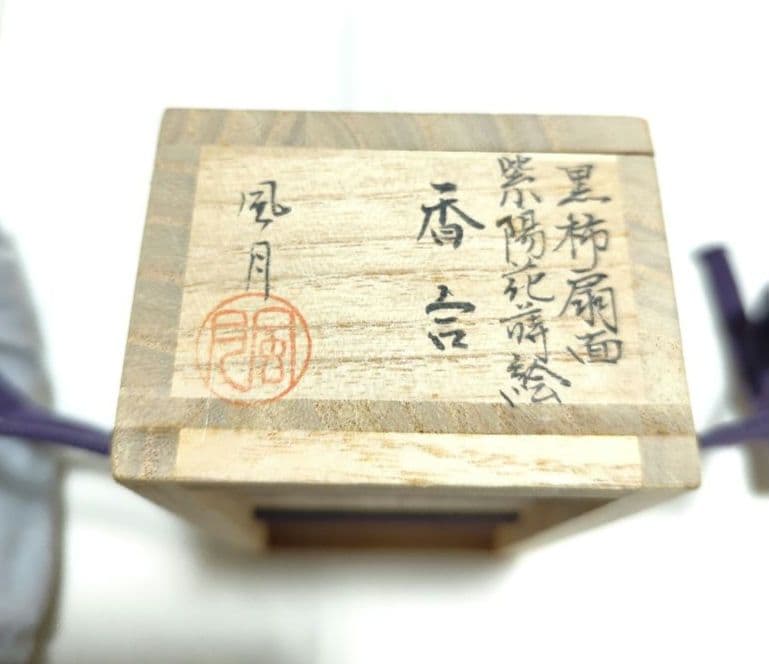 黒柿扇面
紫陽花蒔絵
香合
風月
風月